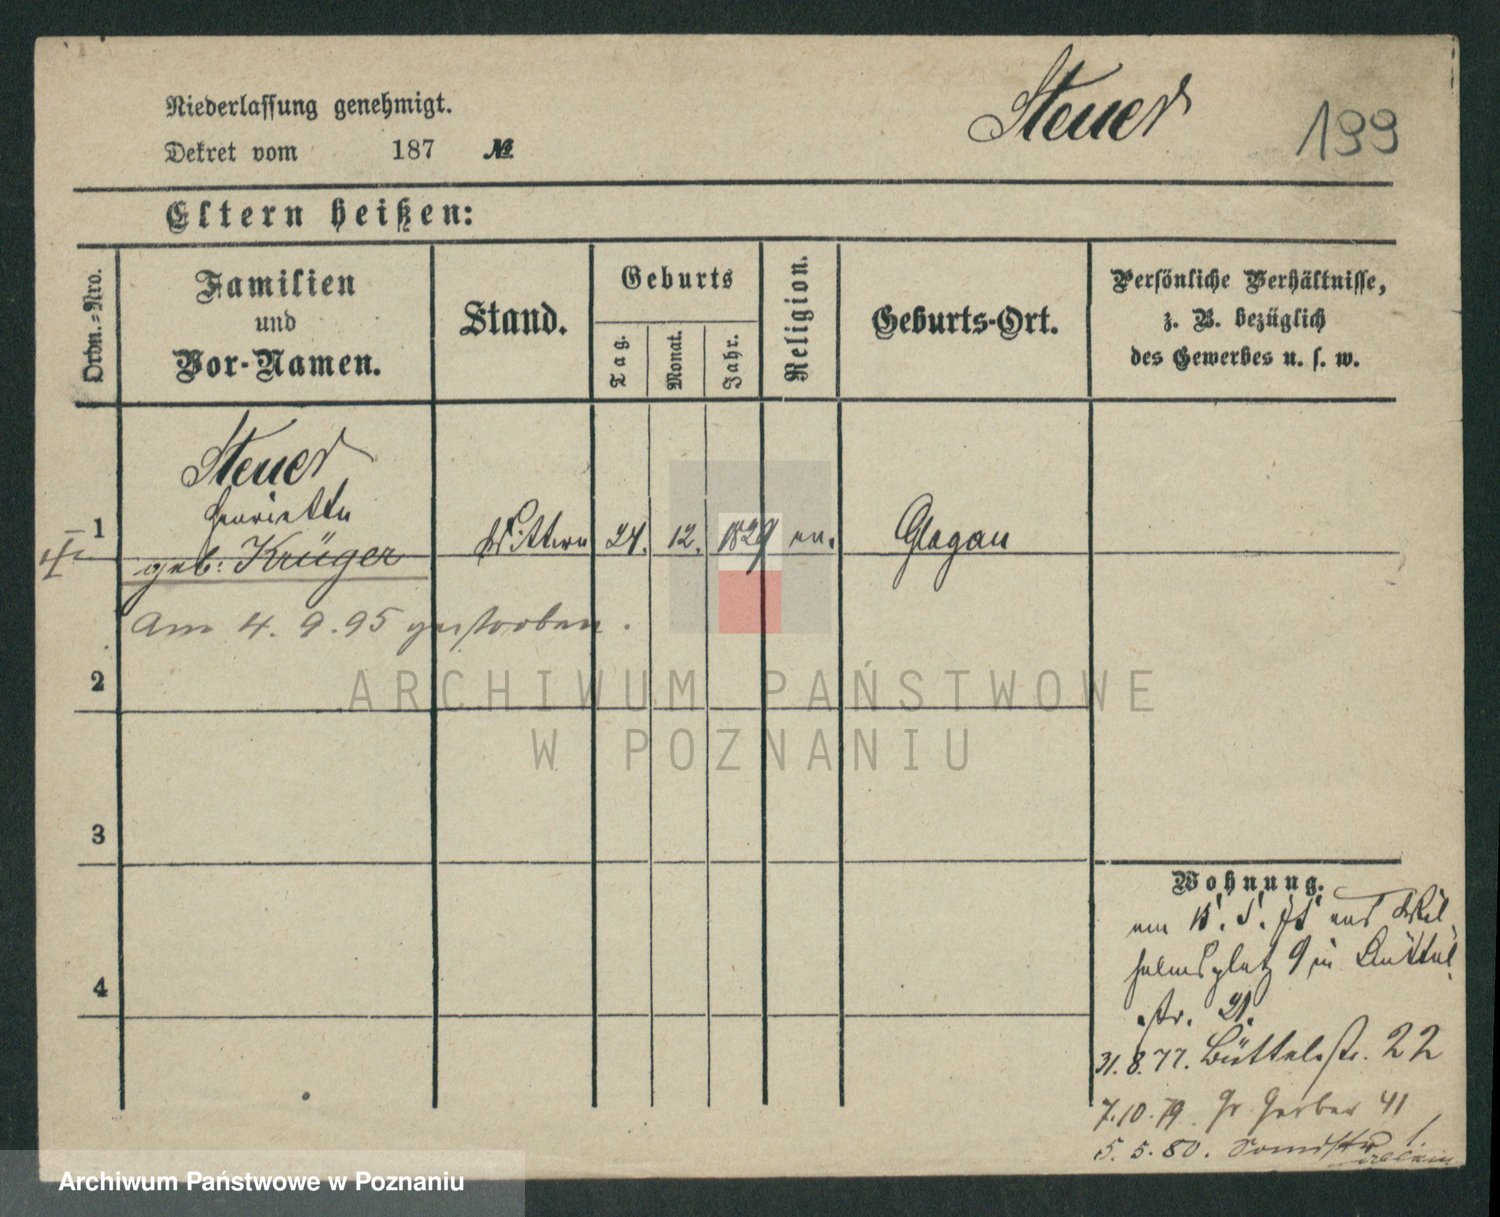 Steuer
199
Niederlassung genehmigt.
Dekret vom 187 №
Eltern heißen:
Ordn.-Nro.
Familien
und
Vor-Namen.
Stand.
Geburts
Tag.
Monat.
Jahr.
Religion.
Geburts-Ort.
Persönliche Verhältnisse,
z. B. bezüglich
des Gewerbes u. s. w.
Steuer
Henriette
1
geb. Krüger
Wittwe 24. 12. 1829 ev. Glogau
Am 4. 9. 95 gestorben.
2
3
4
Wohnung.
aus Wil
helmsplatz 9 in Büttel
str. 21.
31. 8. 77. Büttelstr. 22
7. 10. 79. Gr. Gerber 41
5. 5. 80.
ARCHIWUM PAŃSTWOWE
W POZNANIU
Archiwum Państwowe w Poznaniu